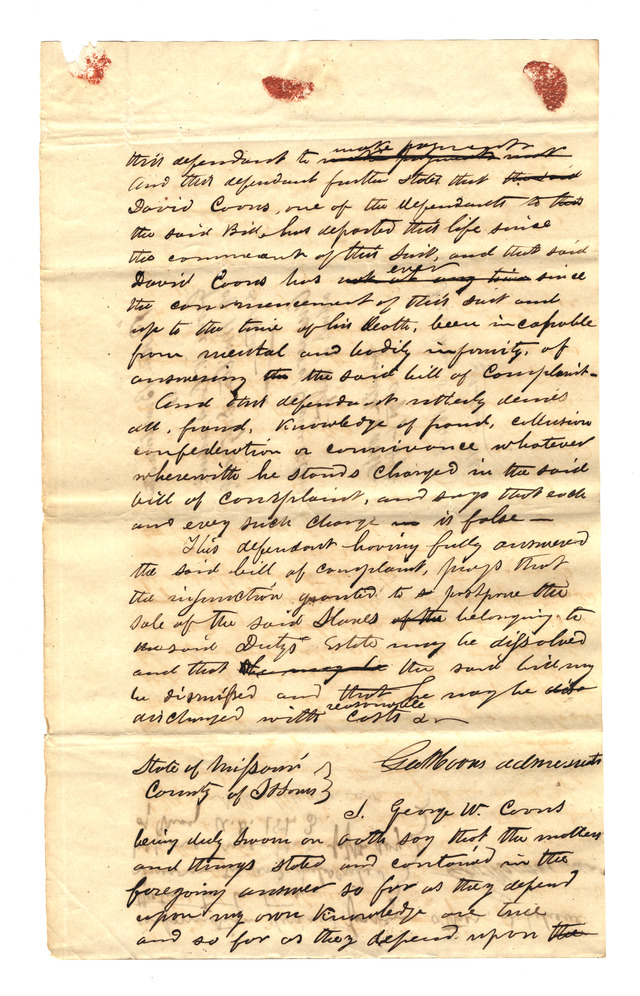 this defendant to make payments
And this defendant further states that the said
David Coons, one of the defendants to this
the said Bill, has departed this life since
the commcant of this suit, and that said
David Coons has ever since
the commencement of this suit and
up to the time of his death, been incapable
from mental and bodily infirmity, of
answering the the said bill of Complaint—
And this defendant utterly denies
all, fraud, knowledge of fraud, collusion
confederation or connivance whatever
wherewith he stands charged in the said
bill of complaint, and says that each
and every such charge is false—
This defendant having fully answered
the said bill of complaint, prays that
the injunction granted to postpone the
sale of the said Slaves of the belonging to
the said Dutys Estate may be dissolved
and that she may be the said bill may
be dismissed and that he may be
discharged with reasonable costs &c
Geo W Coons
State of Missouri }
County of St Louis }
I. George W. Coons
being duly sworn on oath say that the matters
and things stated and contained in the
foregoing answer so far as they depend
upon my own knowledge are true
and so far as they depend upon the